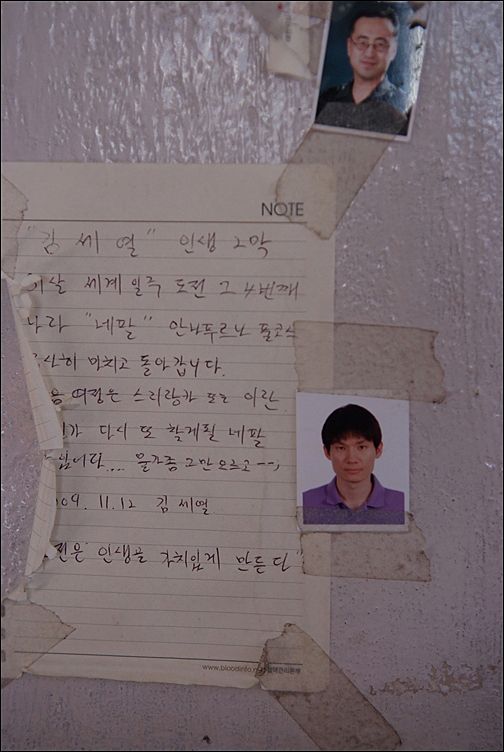 NOTE
"김 세 열" 인생 2막
살 세계일주 도전 그 4번째
나라 "네팔" 안나푸르나 풀코스
사히 마치고 돌아갑니다.
여정은 스리랑카 또는 이란
다시 또 할게될 네팔
입니다.... 물가좀 그만오르고--;
09. 11. 12 김 세열
인생을 가치있게 만든다"
www.bloodinfo.net